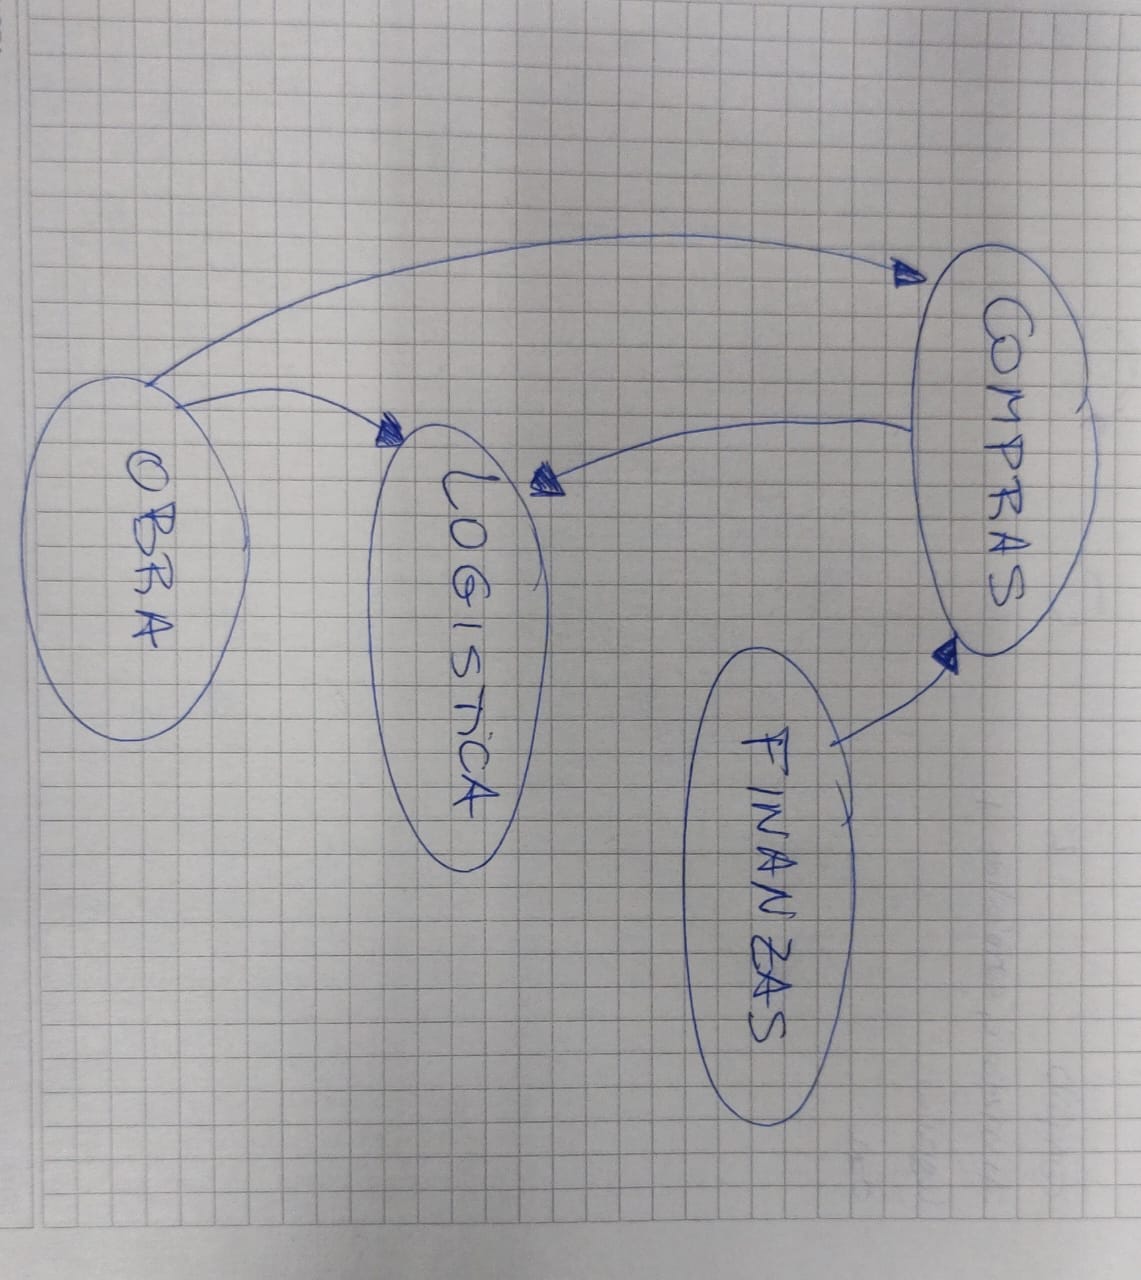 COMPRAS
FINANZAS
LOGISTICA
OBRA